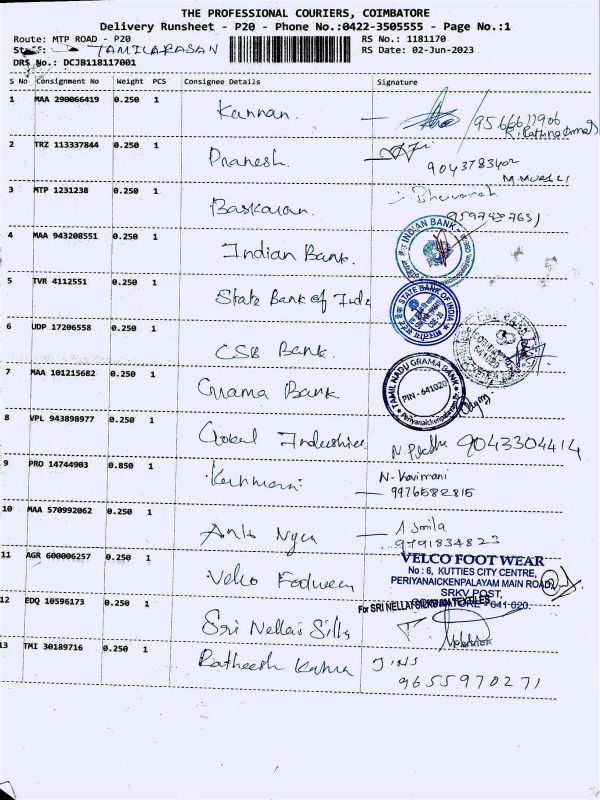 THE PROFESSIONAL COURIERS, COIMBATORE
Delivery Runsheet - P20 - Phone No.:0422-3505555 - Page No.:1
Route: MTP ROAD - P20 RS No.: 1181170
Staff: TAMILARASAN RS Date: 02-Jun-2023
DRS No.: DCJB118117001
S No Consignment No Weight PCS Consignee Details Signature
1 MAA 290066419 0.250 1 Kannan.
9566611906
2 TRZ 113337844 0.250 1 Pranesh.
9043783402
3 MTP 1231238 0.250 1 Baskaran.
4 MAA 943208551 0.250 1 Indian Bank. INDIAN BANK
5 TVR 4112551 0.250 1 State Bank of STATE BANK OF INDIA
6 UDP 17206558 0.250 1 CSB Bank. 641020
7 MAA 101215682 0.250 1 Grama Bank TAMIL NADU GRAMA BANK
PIN - 641020
8 VPL 943898977 0.250 1 9043304414
9 PRO 14744903 0.850 1 N. Kavimani
9976582815
10 MAA 570992062 0.250 1
9791834823
11 AGR 600006257 0.250 1 Velco VELCO FOOT WEAR
No : 6, KUTTIES CITY CENTRE,
PERIYANAICKENPALAYAM MAIN ROAD,
SRKV POST,
641-020.
12 EDQ 10596173 0.250 1 Sri Nellai Silks For SRI NELLAI
13 TMI 30189716 0.250 1 Ratheesh
9655970271